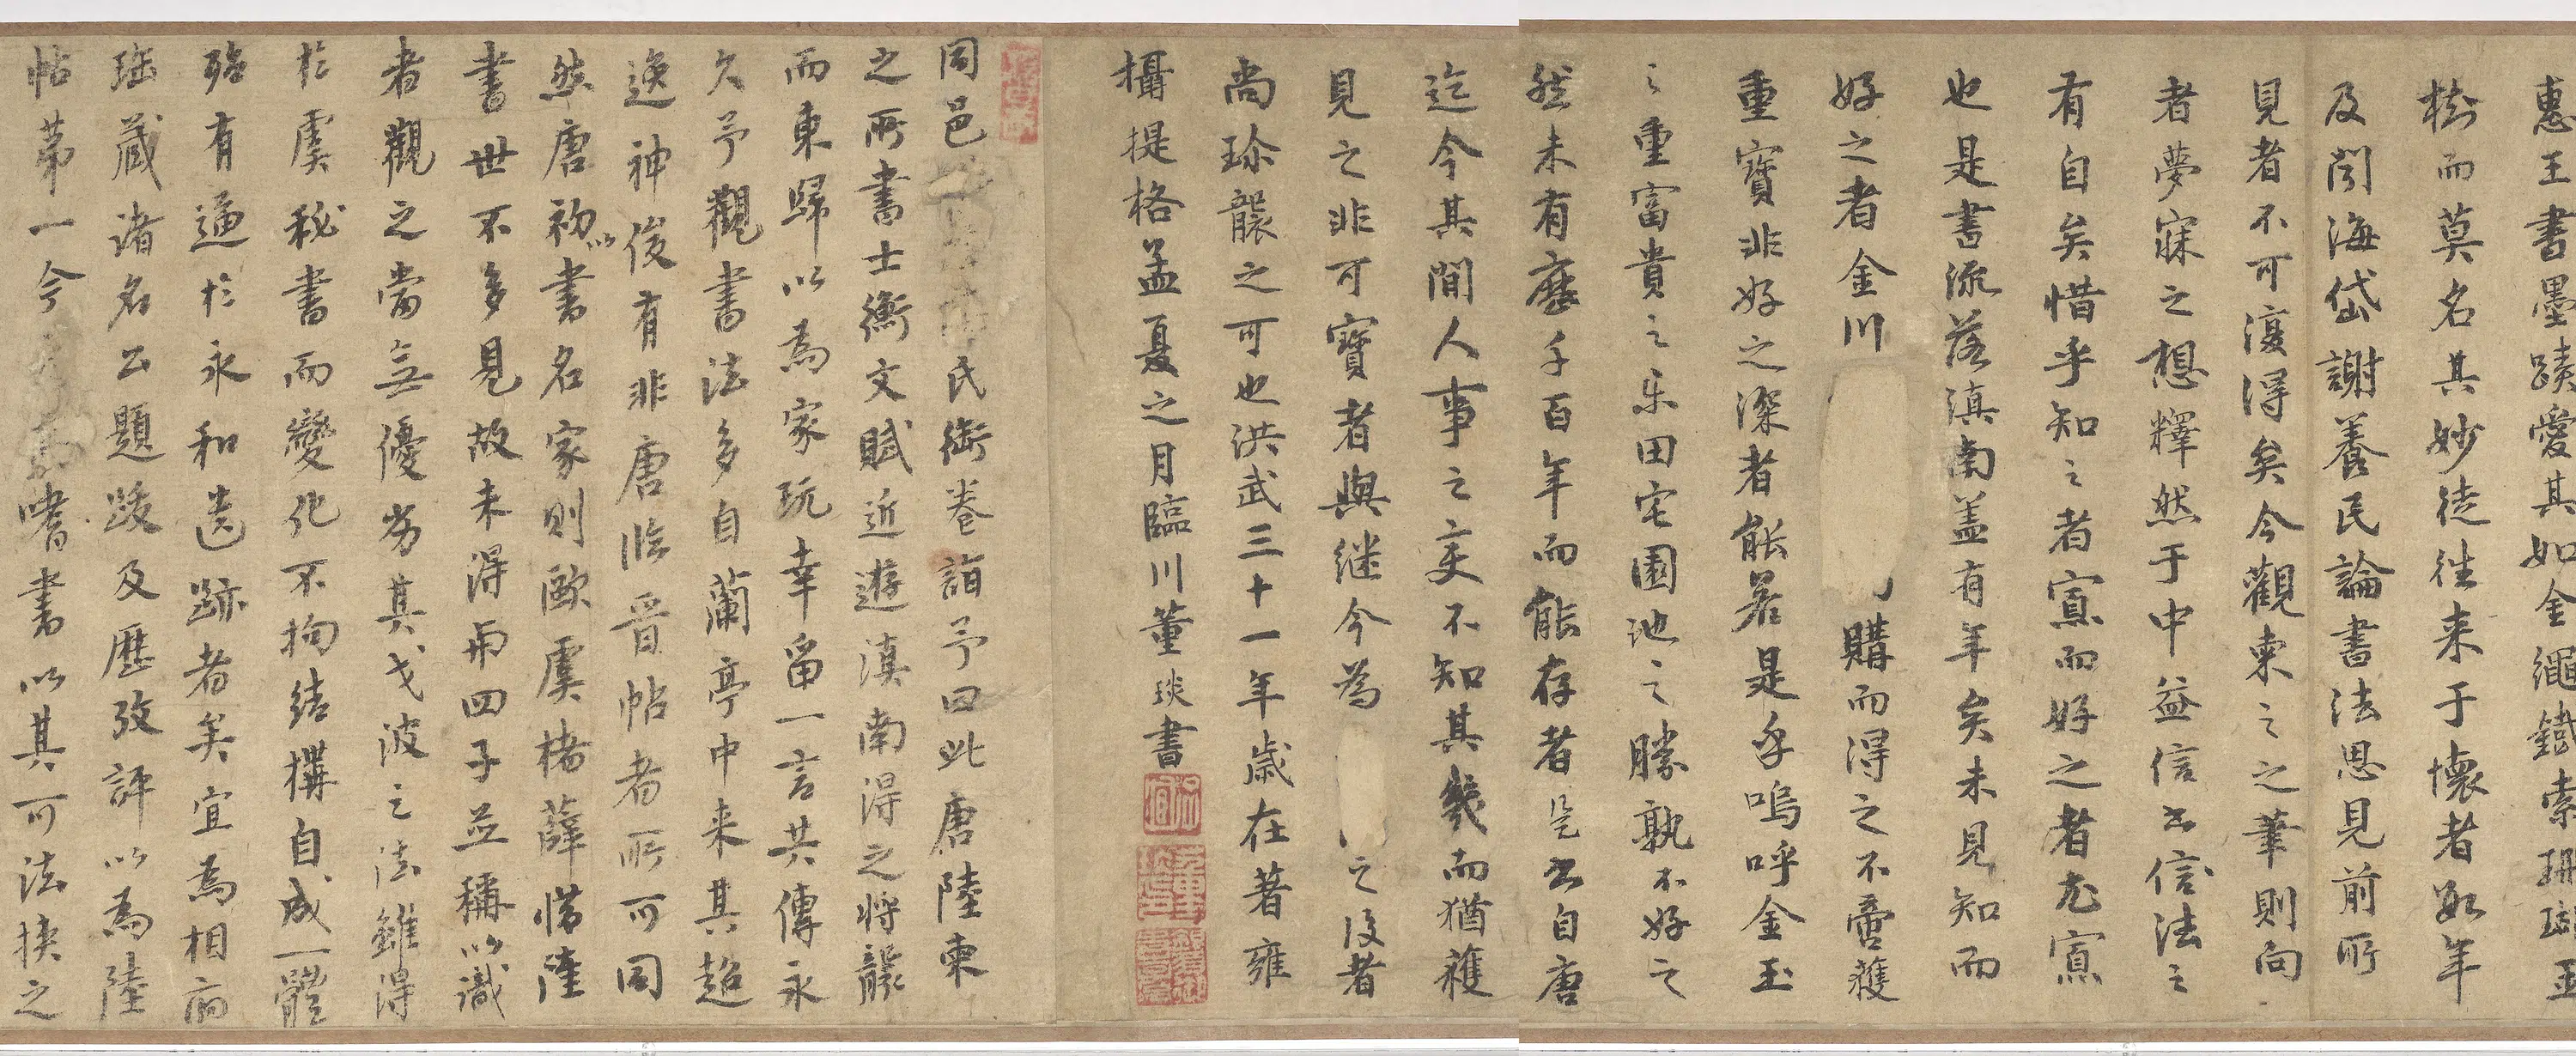 惠王書墨蹟愛其如金繩鐵索珊瑚玉
樹而莫名其妙徒往来于懷者數年
及閱海岱謝養民論書法恩見前所
見者不可復得矣今觀柬之之筆則向
者夢寐之想釋然于中益信書信法之
有自矣惜乎知之者寡而好之者尤寡
也是書流落滇南盖有年矣未見知而
好之者金川購而得之不啻獲
重寶非好之深者能若是乎嗚呼金玉
之重富貴之樂田宅園池之勝孰不好之
然未有歷千百年而能存者是書自唐
迄今其間人事之变不知其幾而猶獲
見之非可寶者與继今為之後者
尚珎襲之可也洪武三十一年歲在著雍
攝提格孟夏之月臨川董琰書
同邑氏衒卷詣予曰此唐陸柬
之所書士衡文賦近遊滇南得之将襲
而東歸以為家玩幸留一言共傳永
久予觀書法多自蘭亭中来其超
逸神俊有非唐臨晋帖者所可同
然唐初以書名家則歐虞楮薛惜陸
書世不多見故未得與四子並稱以識
者觀之當無優劣其戈波之法雖得
於虞秘書而變化不拘结搆自成一體
殆有逼於永和遺跡者矣宜為相府
珤藏諸名公題跋及歷攷評以為陸
帖第一今嗜書以其可法挾之